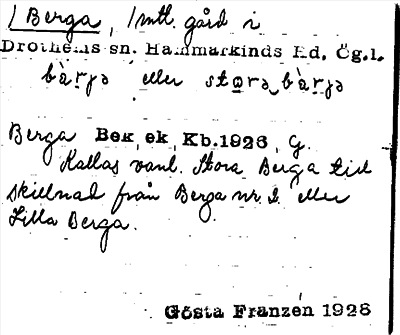 1 Berga, 1 mtl. gård i
Drothems sn. Hammarkinds Hd, Ög.l.
bàrja eller stora bàrja
Berga Bek, ek, Kb. 1926, G.
Kallas vanl. Stora Berga till
skillnad från Berga nr. 2 eller
Lilla Berga.
Gösta Franzén 1926